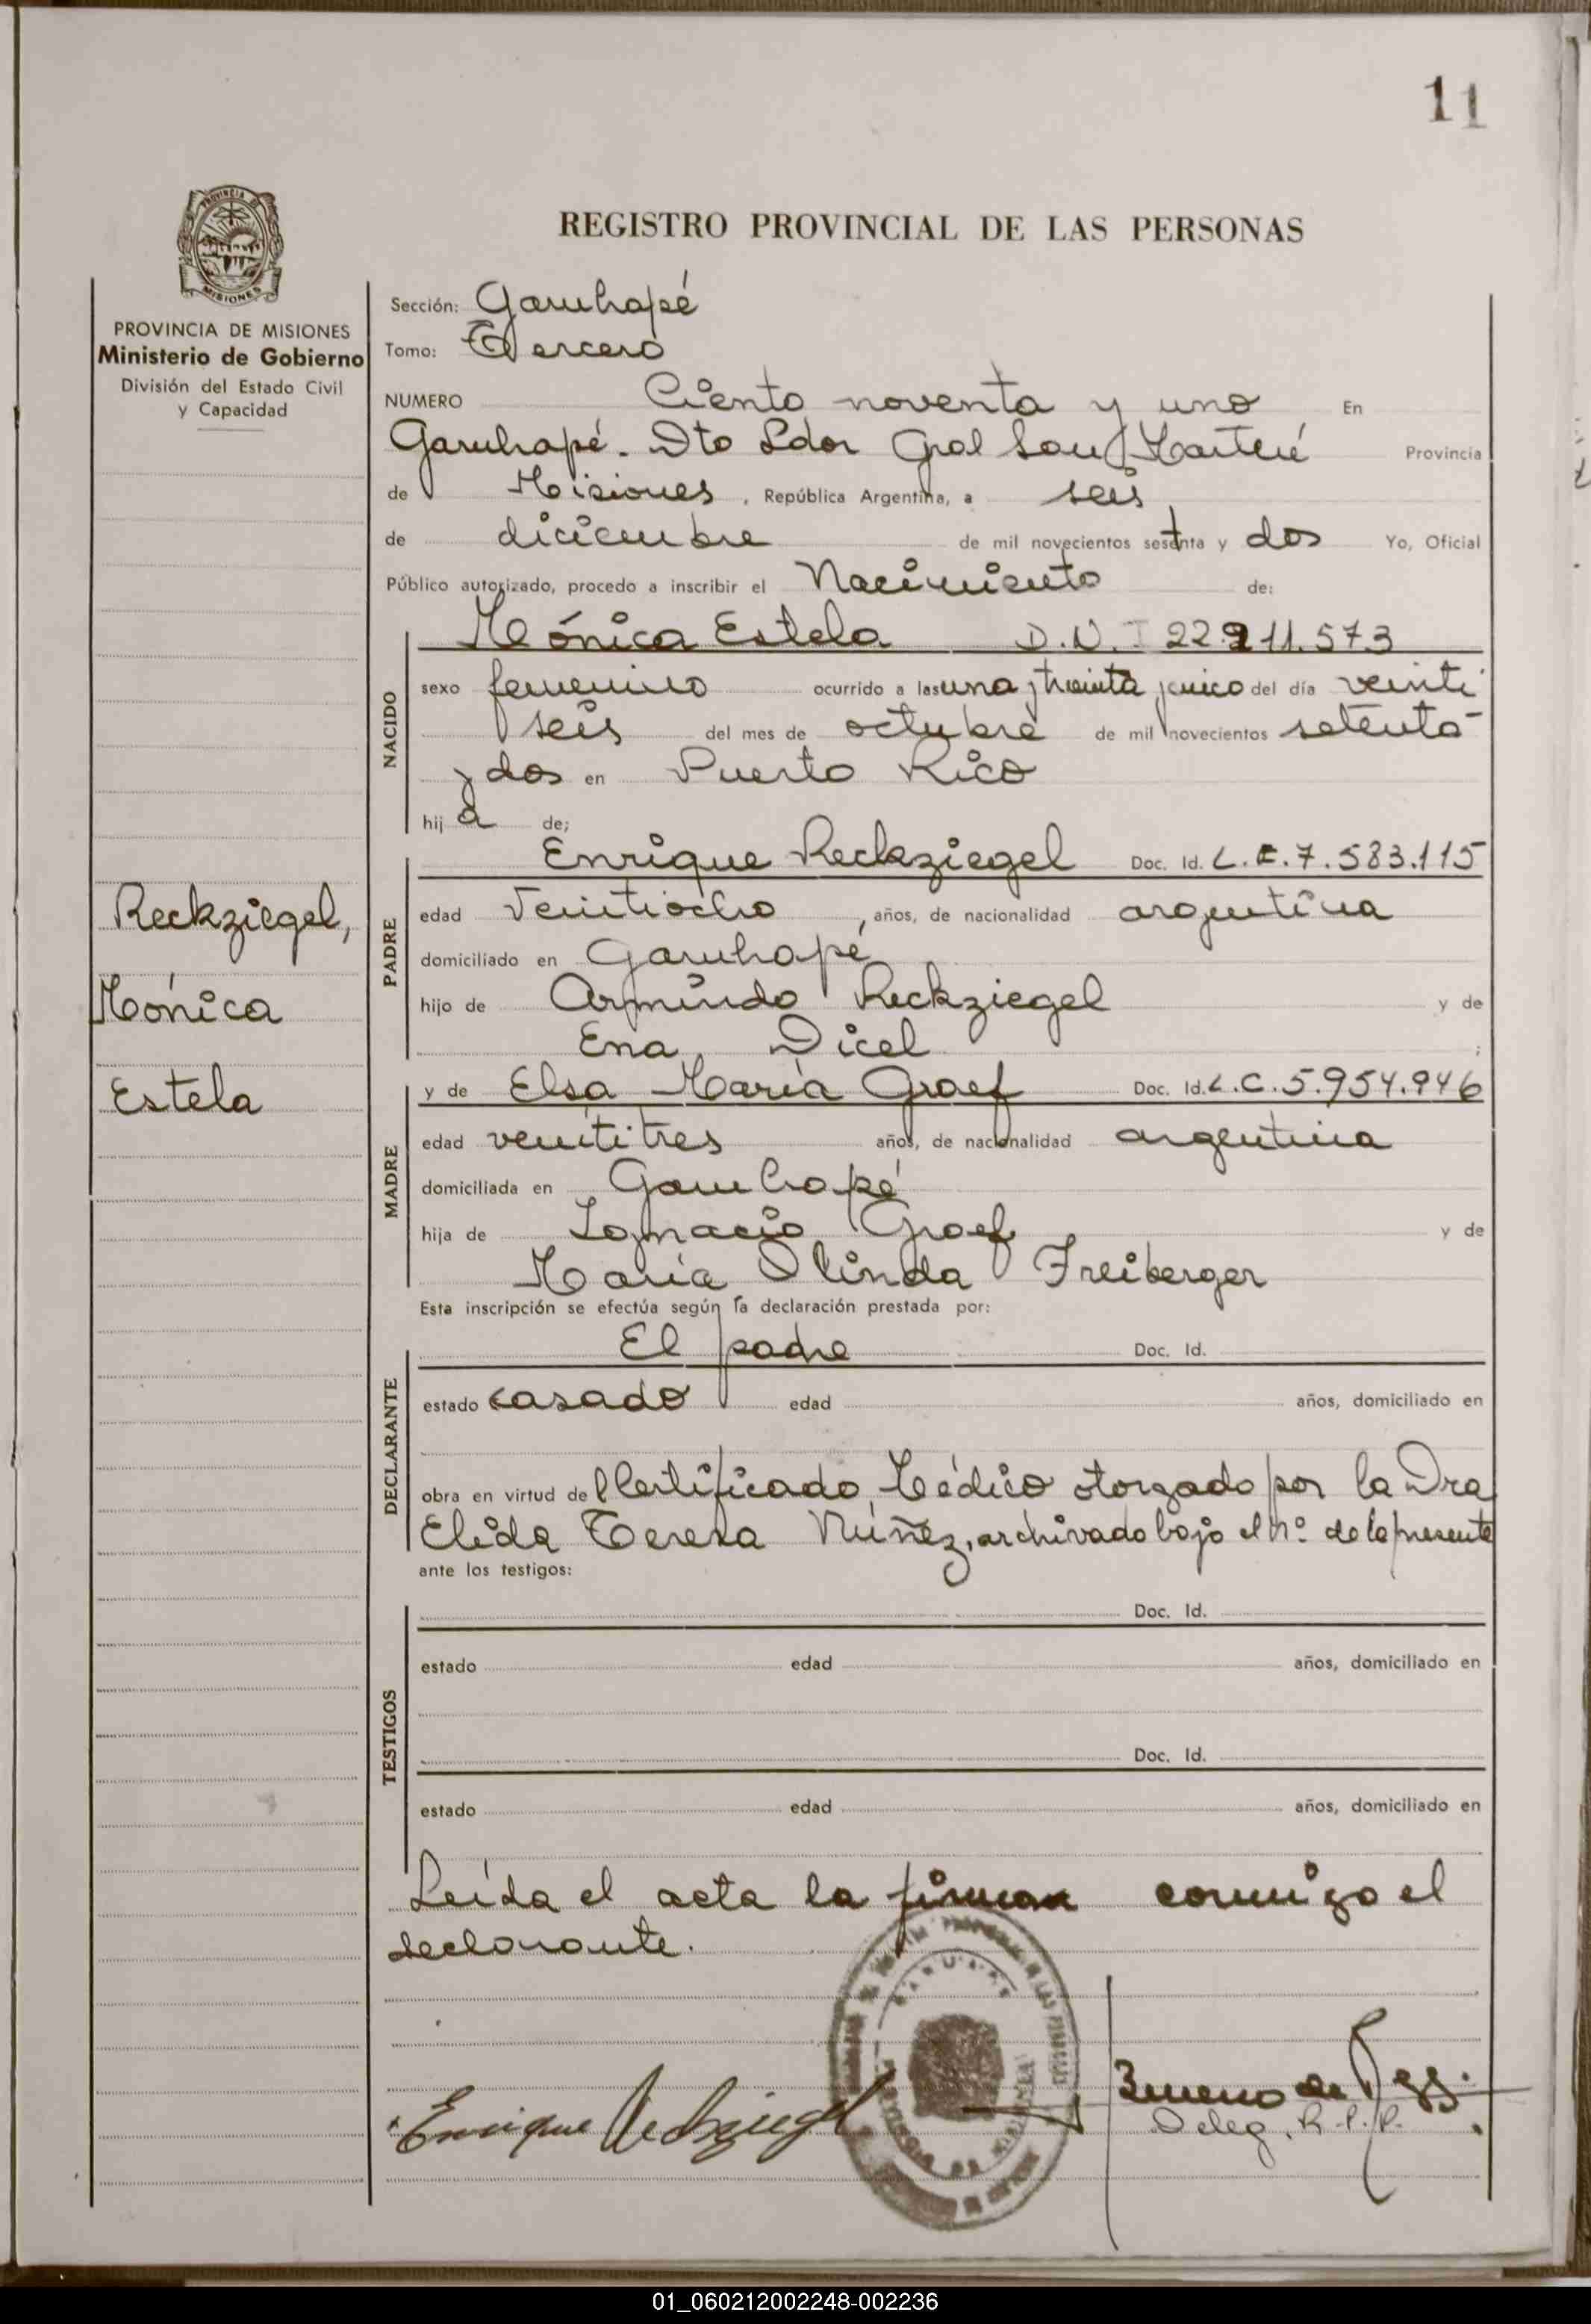 11
REGISTRO PROVINCIAL DE LAS PERSONAS
PROVINCIA DE MISIONES
Ministerio de Gobierno
División del Estado Civil
y Capacidad
Reckziegel,
Mónica
Estela
Sección: Garuhapé
Tomo: Tercero
NUMERO Ciento noventa y uno En
Garuhapé. Dto Ldor Gral San Martín Provincia
de Misiones, República Argentina, a seis
de diciembre de mil novecientos setenta y dos Yo, Oficial
Público autorizado, procedo a inscribir el Nacimiento de:
NACIDO
Mónica Estela D.N.I 22.911.573
sexo femenino ocurrido a las una y treinta y cinco del día veinti
seis del mes de octubre de mil novecientos setenta
y dos en Puerto Rico
hij a de;
PADRE
Enrique Reckziegel Doc. Id. L.E.7.583.115
edad Veintiocho, años, de nacionalidad argentina
domiciliado en Garuhapé
hijo de Armindo Reckziegel y de
Ena Dicel ;
MADRE
y de Elsa María Graef Doc. Id. L.C.5.954.946
edad veintitres años, de nacionalidad argentina
domiciliada en Garuhapé
hija de Ignacio Graef y de
María Olinda Freiberger
Esta inscripción se efectúa según la declaración prestada por:
DECLARANTE
El padre Doc. Id.
estado casado edad años, domiciliado en
obra en virtud del Certificado Médico otorgado por la Dra
Elida Teresa Núñez, archivado bajo el nº de la presente
ante los testigos:
TESTIGOS
Doc. Id.
estado edad años, domiciliado en
Doc. Id.
estado edad años, domiciliado en
Leída el acta la firma conmigo el
declarante.
Enrique Reckziegel
Deleg. R.P.P.
01_060212002248-002236